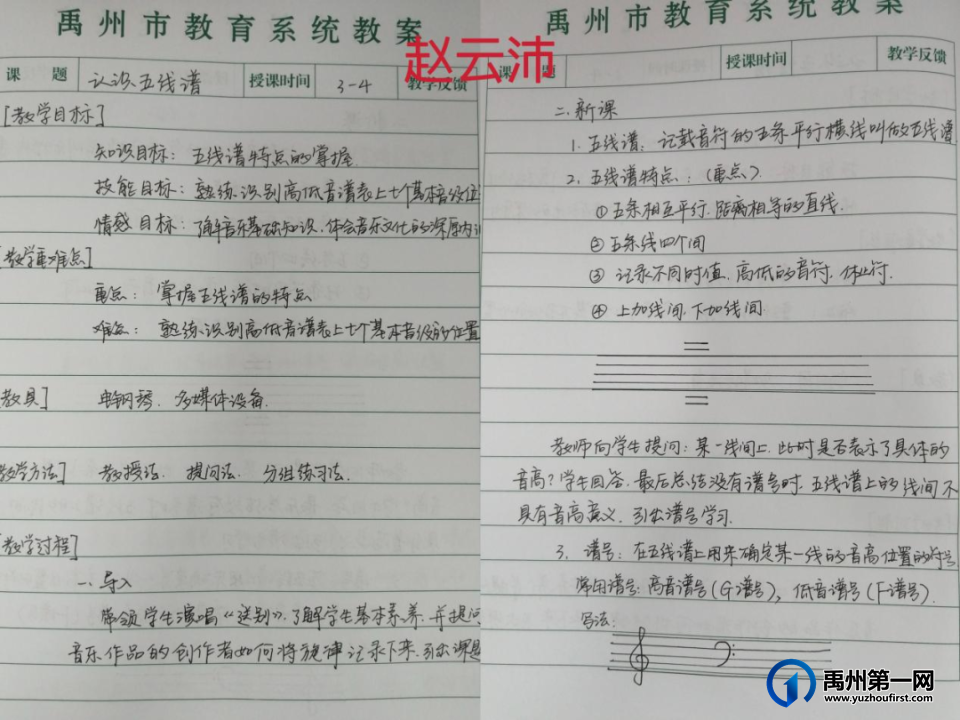 禹州市教育系统教案
赵云沛
课 题 认识五线谱 授课时间 3-4 教学反馈
[教学目标]
知识目标：五线谱特点的掌握
技能目标：熟练识别高低音谱表上七个基本音级位
情感目标：了解音乐基础知识、体会音乐文化的深厚内
[教学重难点]
重点：掌握五线谱的特点
难点：熟练识别高低音谱表上七个基本音级的位置
[教具] 电钢琴、多媒体设备.
[教学方法] 教授法、提问法、分组练习法.
[教学过程]
一.导入
带领学生演唱《送别》,了解学生基本素养,并提问
音乐作品的创作者如何将旋律记录下来,引出课题
禹州市教育系统教案
授课时间 教学反馈
二.新课
1.五线谱:记载音符的五条平行横线叫做五线谱
2.五线谱特点：(重点)
①五条相互平行.距离相等的直线.
②五条线四个间
③记录不同时值、高低的音符、休止符.
④上加线间.下加线间
教师向学生提问：某一线间上,此时是否表示了具体的
音高?学生回答.最后总结没有谱号时,五线谱上的线间不
具有音高意义,引出谱号学习.
3.谱号：在五线谱上用来确定某一线的音高位置的符号
常用谱号:高音谱号(G谱号),低音谱号(F谱号).
写法:
禹州第一网
www.yuzhoufirst.com